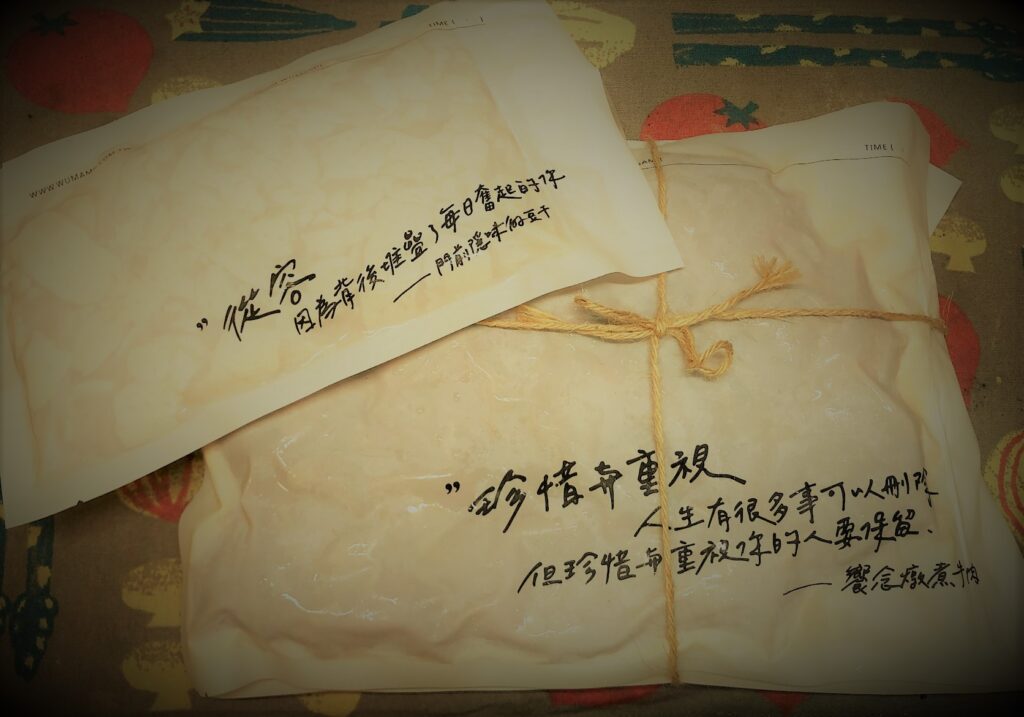 TIME (
WWW.WUMAM
”從容
因為背後堆疊了每日奮起的你
—門前隱味的豆干
TIME (
”珍惜與重視
人生有很多事可以刪除
但珍惜與重視你的人要保留、
—饗念燉煮牛肉